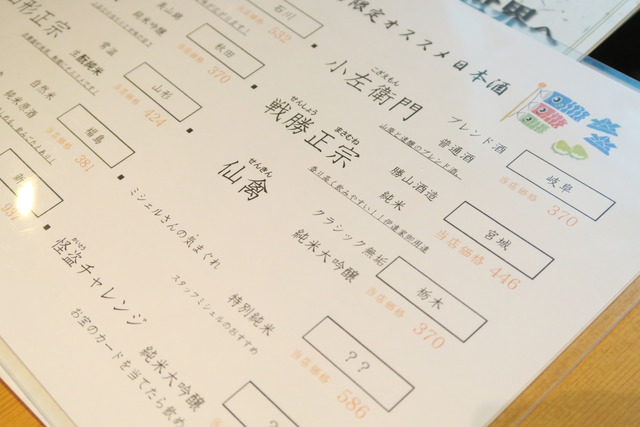 限定オススメ日本酒
世界へ
小左衛門
こざえもん
ブレンド酒
普通酒
岐阜
当店価格 370
戦勝正宗
せんしょう
まさむね
勝山酒造
純米
宮城
当店価格 446
仙禽
せんきん
クラシック無垢
純米大吟醸
栃木
当店価格 370
ミシェルさんの気まぐれ
特別純米
スタッフミシェルのおすすめ
??
当店価格 586
怪盗チャレンジ
かいとう
純米大吟醸
お宝のカードを当てたら飲め
石川
532
純米吟醸
秋田
当店価格 370
形正宗
常温
生酛純米
山形
当店価格 424
自然米
純米原酒
福島
当店価格 381
新